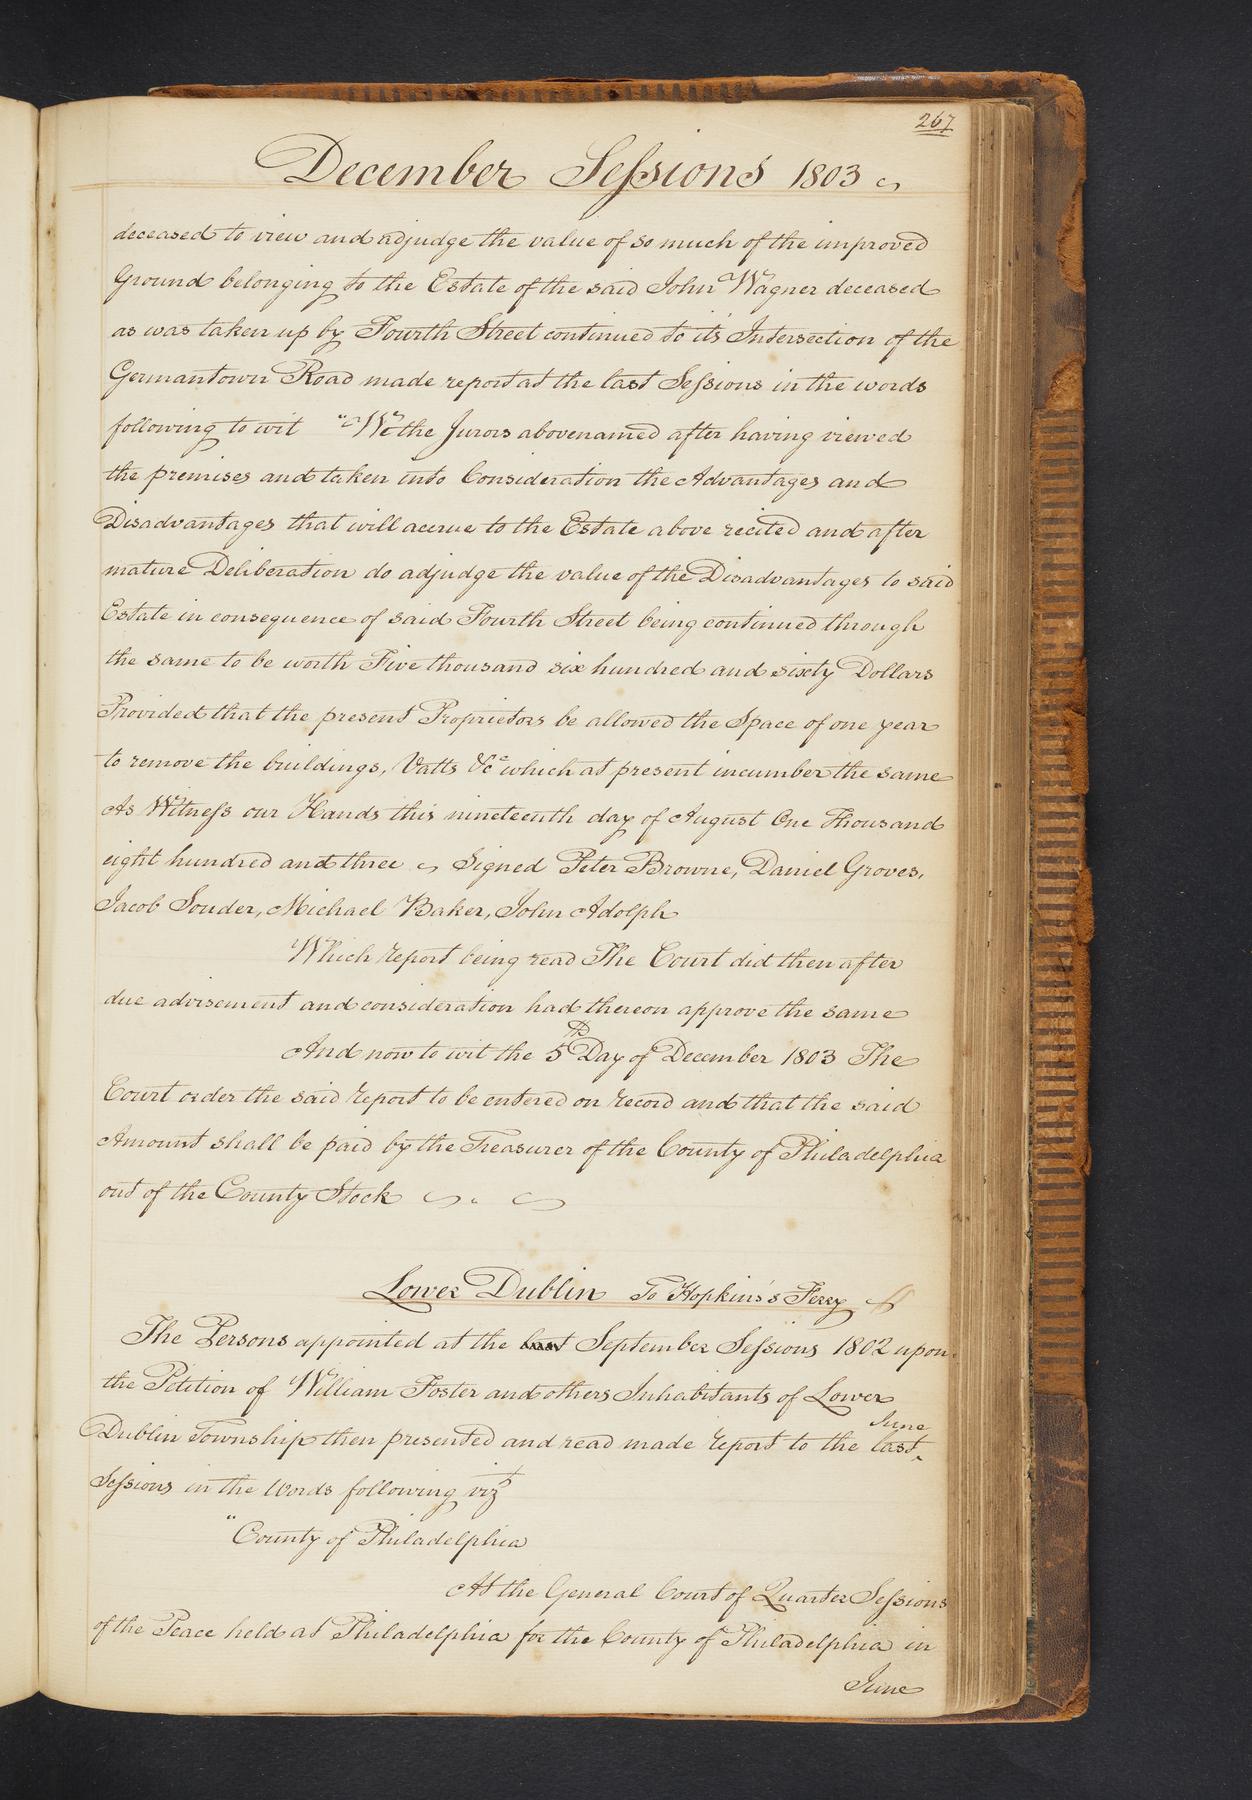 267
December Sessions 1803
deceased to view and adjudge the value of so much of the improved
Ground belonging to the Estate of the said John Wagner deceased
as was taken up by Fourth Street continued to it's Intersection of the
Germantown Road made report at the last Sessions in the words
following to wit "We the Jurors abovenamed after having viewed
the premises and taken into Consideration the Advantages and
Disadvantages that will accrue to the Estate above recited and after
mature Deliberation do adjudge the value of the Disadvantages to said
Estate in consequence of said Fourth Street being continued through
the same to be worth Five thousand six hundred and sixty Dollars
Provided that the present Proprietors be allowed the Space of one year
to remove the buildings, Vatts &c which at present incumber the same
As Witness our Hands this nineteenth day of August One Thousand
eight hundred and three Signed Peter Browne, Daniel Groves,
Jacob Souder, Michael Baker, John Adolph
Which report being read The Court did then after
due advisement and consideration had thereon approve the same
And now to wit the 5th Day of December 1803 The
Court order the said report to be entered on record and that the said
Amount shall be paid by the Treasurer of the County of Philadelphia
out of the County Stock
Lower Dublin To Hopkins's Ferry
The Persons appointed at the September Sessions 1802 upon
the Petition of William Foster and others Inhabitants of Lower
Dublin Township then presented and read made report to the last June
Sessions in the Words following vizt
"County of Philadelphia
At the General Court of Quarter Sessions
of the Peace held at Philadelphia for the County of Philadelphia in
June